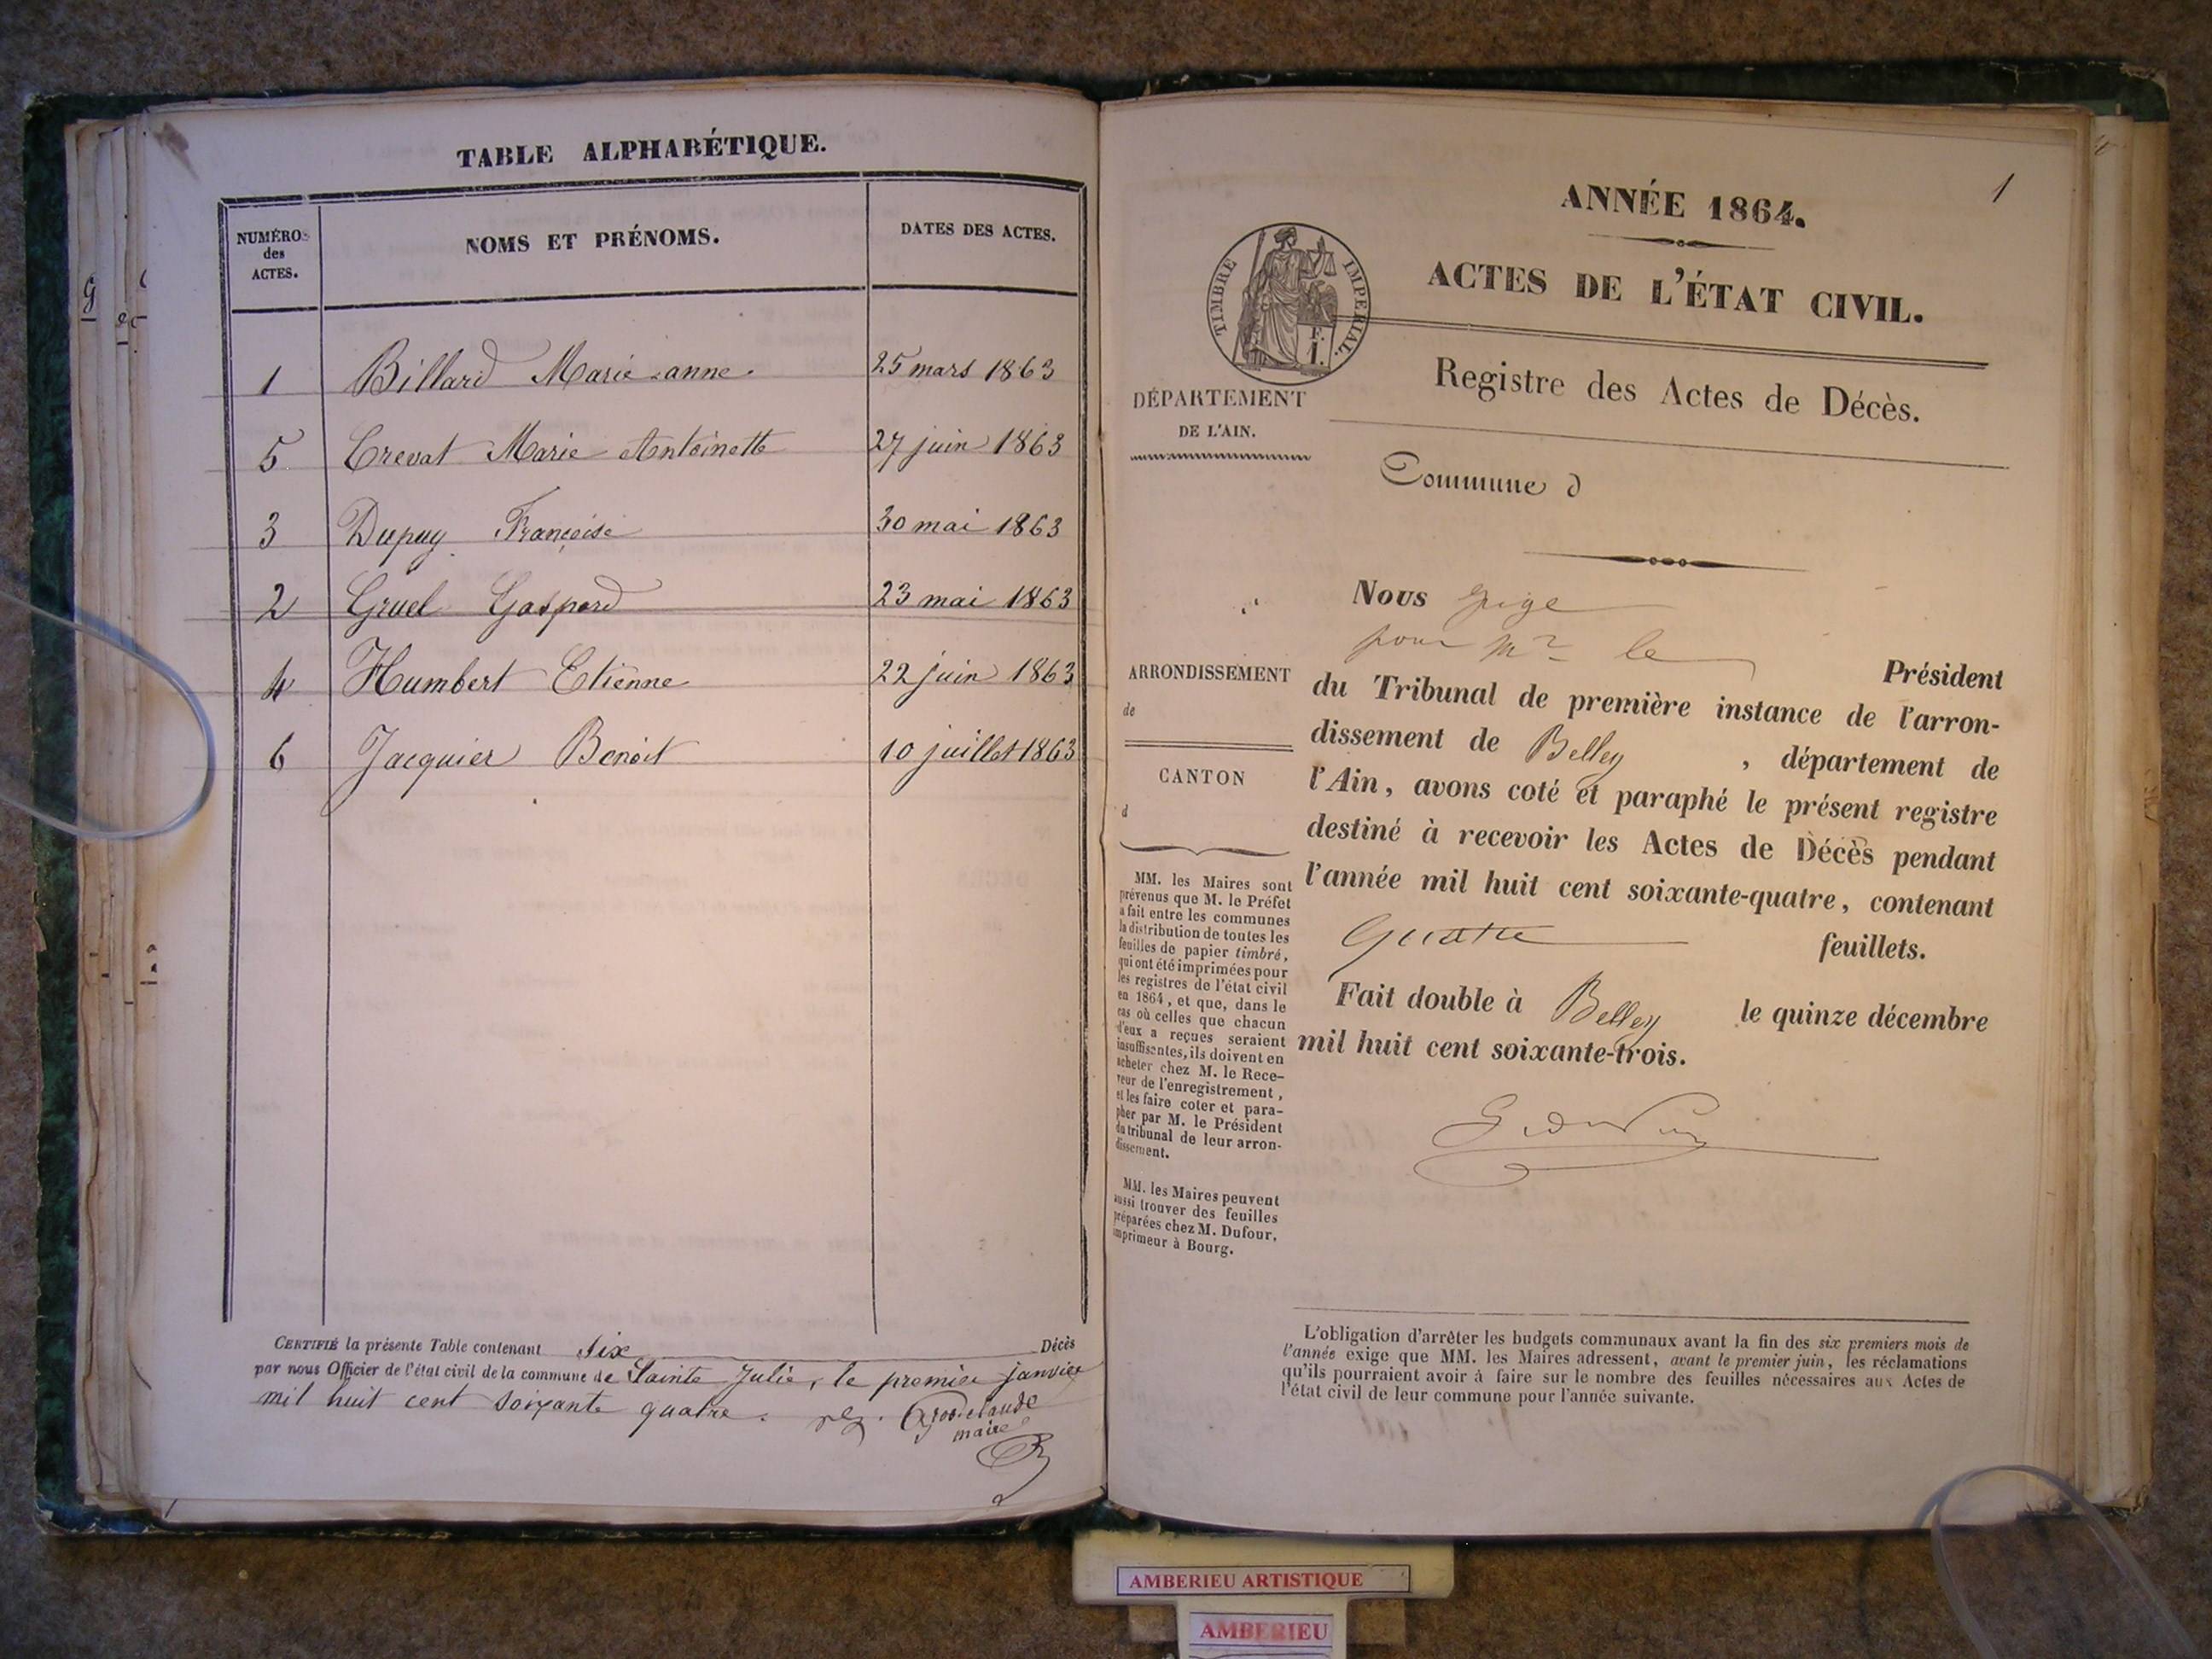 TABLE ALPHABÉTIQUE.
NUMÉROS
des
ACTES.
NOMS ET PRÉNOMS.
DATES DES ACTES.
1 Billard Marie-anne. 25 mars 1863
5 Crevat Marie Antoinette 27 juin 1863
3 Dupuy Françoise 30 mai 1863
2 Gruel Gaspard 23 mai 1863
4 Humbert Etienne 22 juin 1863
6 Jacquier Benoit 10 juillet 1863
CERTIFIÉ la présente Table contenant six Décès
par nous Officier de l'état civil de la commune de Sainte Julie, le premier janvier
mil huit cent soixante quatre.
maire
1
ANNÉE 1864.
ACTES DE L'ÉTAT CIVIL.
TIMBRE IMPERIAL.
F.
I.
Registre des Actes de Décès.
DÉPARTEMENT
DE L'AIN.
Commune d
Nous
pour Mr le
Président
du Tribunal de première instance de l'arron-
dissement de Belley , département de
l'Ain, avons coté et paraphé le présent registre
destiné à recevoir les Actes de Décès pendant
l'année mil huit cent soixante-quatre, contenant
Quatre feuillets.
Fait double à Belley le quinze décembre
mil huit cent soixante-trois.
ARRONDISSEMENT
de
CANTON
d
MM. les Maires sont
prévenus que M. le Préfet
a fait entre les communes
la distribution de toutes les
feuilles de papier timbré,
qui ont été imprimées pour
les registres de l'état civil
en 1864, et que, dans le
cas où celles que chacun
d'eux a reçues seraient
insuffisantes, ils doivent en
acheter chez M. le Rece-
veur de l'enregistrement,
et les faire coter et para-
pher par M. le Président
du tribunal de leur arron-
dissement.
MM. les Maires peuvent
aussi trouver des feuilles
préparées chez M. Dufour,
imprimeur à Bourg.
L'obligation d'arrêter les budgets communaux avant la fin des six premiers mois de
l'année exige que MM. les Maires adressent, avant le premier juin, les réclamations
qu'ils pourraient avoir à faire sur le nombre des feuilles nécessaires aux Actes de
l'état civil de leur commune pour l'année suivante.
AMBERIEU ARTISTIQUE
AMBERIEU